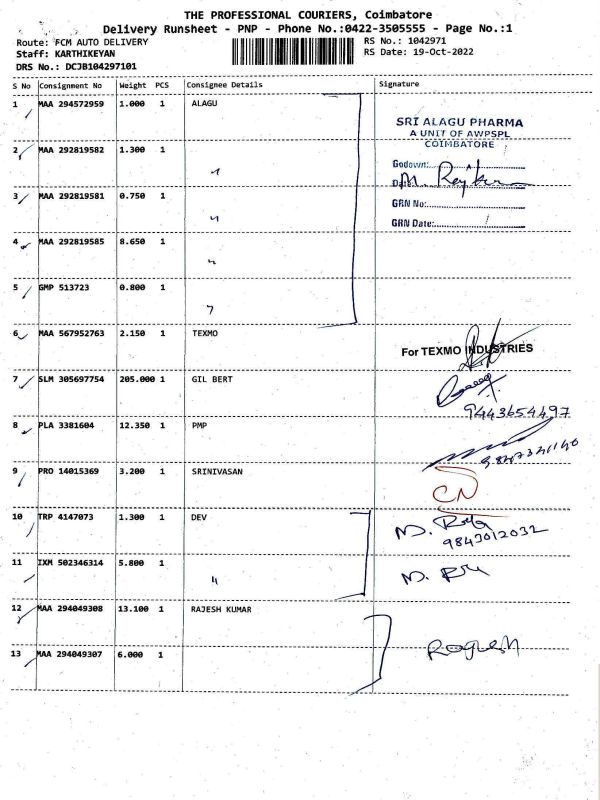 THE PROFESSIONAL COURIERS, Coimbatore
Delivery Runsheet - PNP - Phone No.:0422-3505555 - Page No.:1
Route: FCM AUTO DELIVERY
Staff: KARTHIKEYAN
DRS No.: DCJB104297101
RS No.: 1042971
RS Date: 19-Oct-2022
S No Consignment No Weight PCS Consignee Details Signature
1 MAA 294572959 1.000 1 ALAGU
SRI ALAGU PHARMA
A UNIT OF AWPSPL
COIMBATORE
2 MAA 292819582 1.300 1 "
Godown:
Date:
3 MAA 292819581 0.750 1 "
GRN No:
GRN Date:
4 MAA 292819585 8.650 1 "
5 GMP 513723 0.800 1 "
6 MAA 567952763 2.150 1 TEXMO
For TEXMO INDUSTRIES
7 SLM 305697754 205.000 1 GIL BERT
9443654497
8 PLA 3381604 12.350 1 PMP
9 PRO 14015369 3.200 1 SRINIVASAN
CN
10 TRP 4147073 1.300 1 DEV
9843012032
11 IXM 502346314 5.800 1 "
12 MAA 294049308 13.100 1 RAJESH KUMAR
13 MAA 294049307 6.000 1